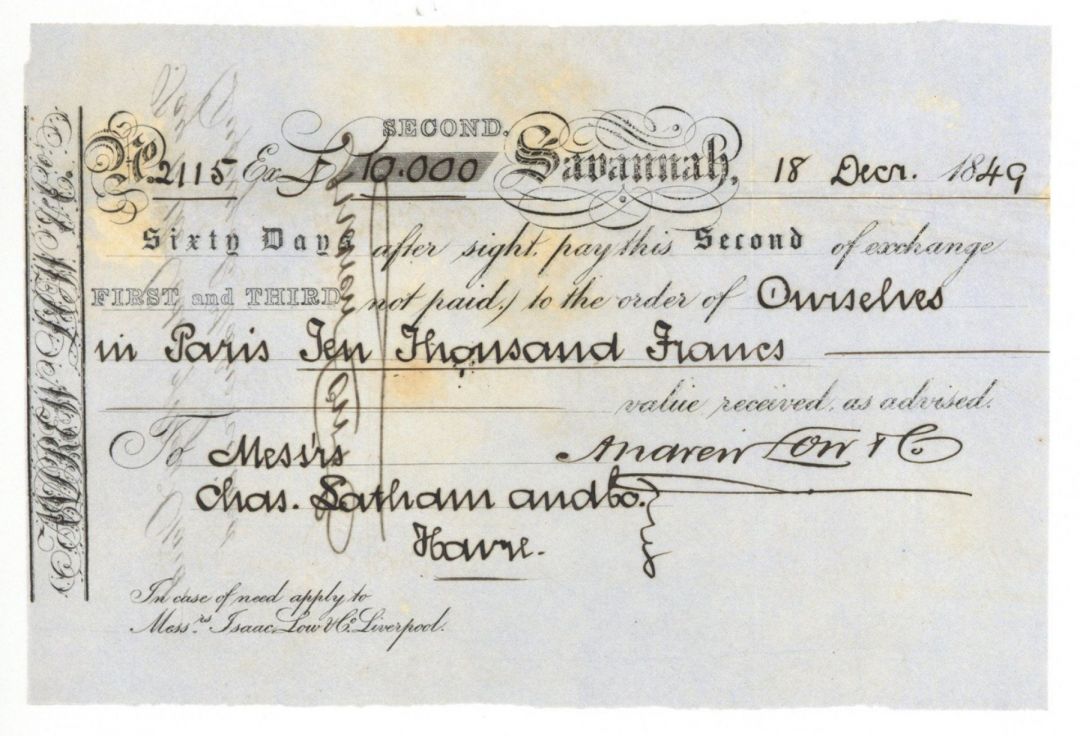 SECOND.
No. 2115 Ex F 10.000 Savannah, 18 Decr. 1849
Sixty Days after sight, pay this Second of exchange
FIRST and THIRD not paid,) to the order of Ourselves
in Paris Ten Thousand Francs
value received, as advised.
To Mess'rs Andrew Low & Co
Chas. Latham and Co.
Havre.
In case of need apply to
Messrs. Isaac Low & Co. Liverpool.
ANDREW LOW & CO.